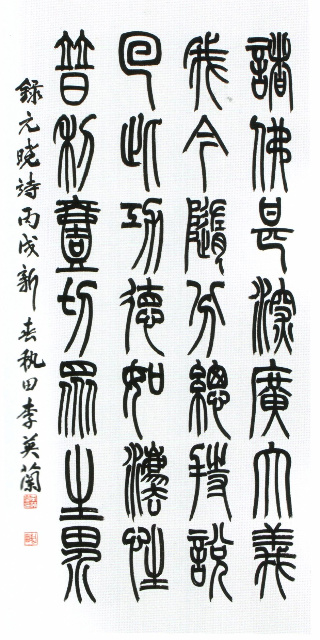 諸佛甚深廣大義
我今隨分總持說
回此功德如法性
普利壹切眾生界
錄元曉詩丙戌新春執田李英蘭